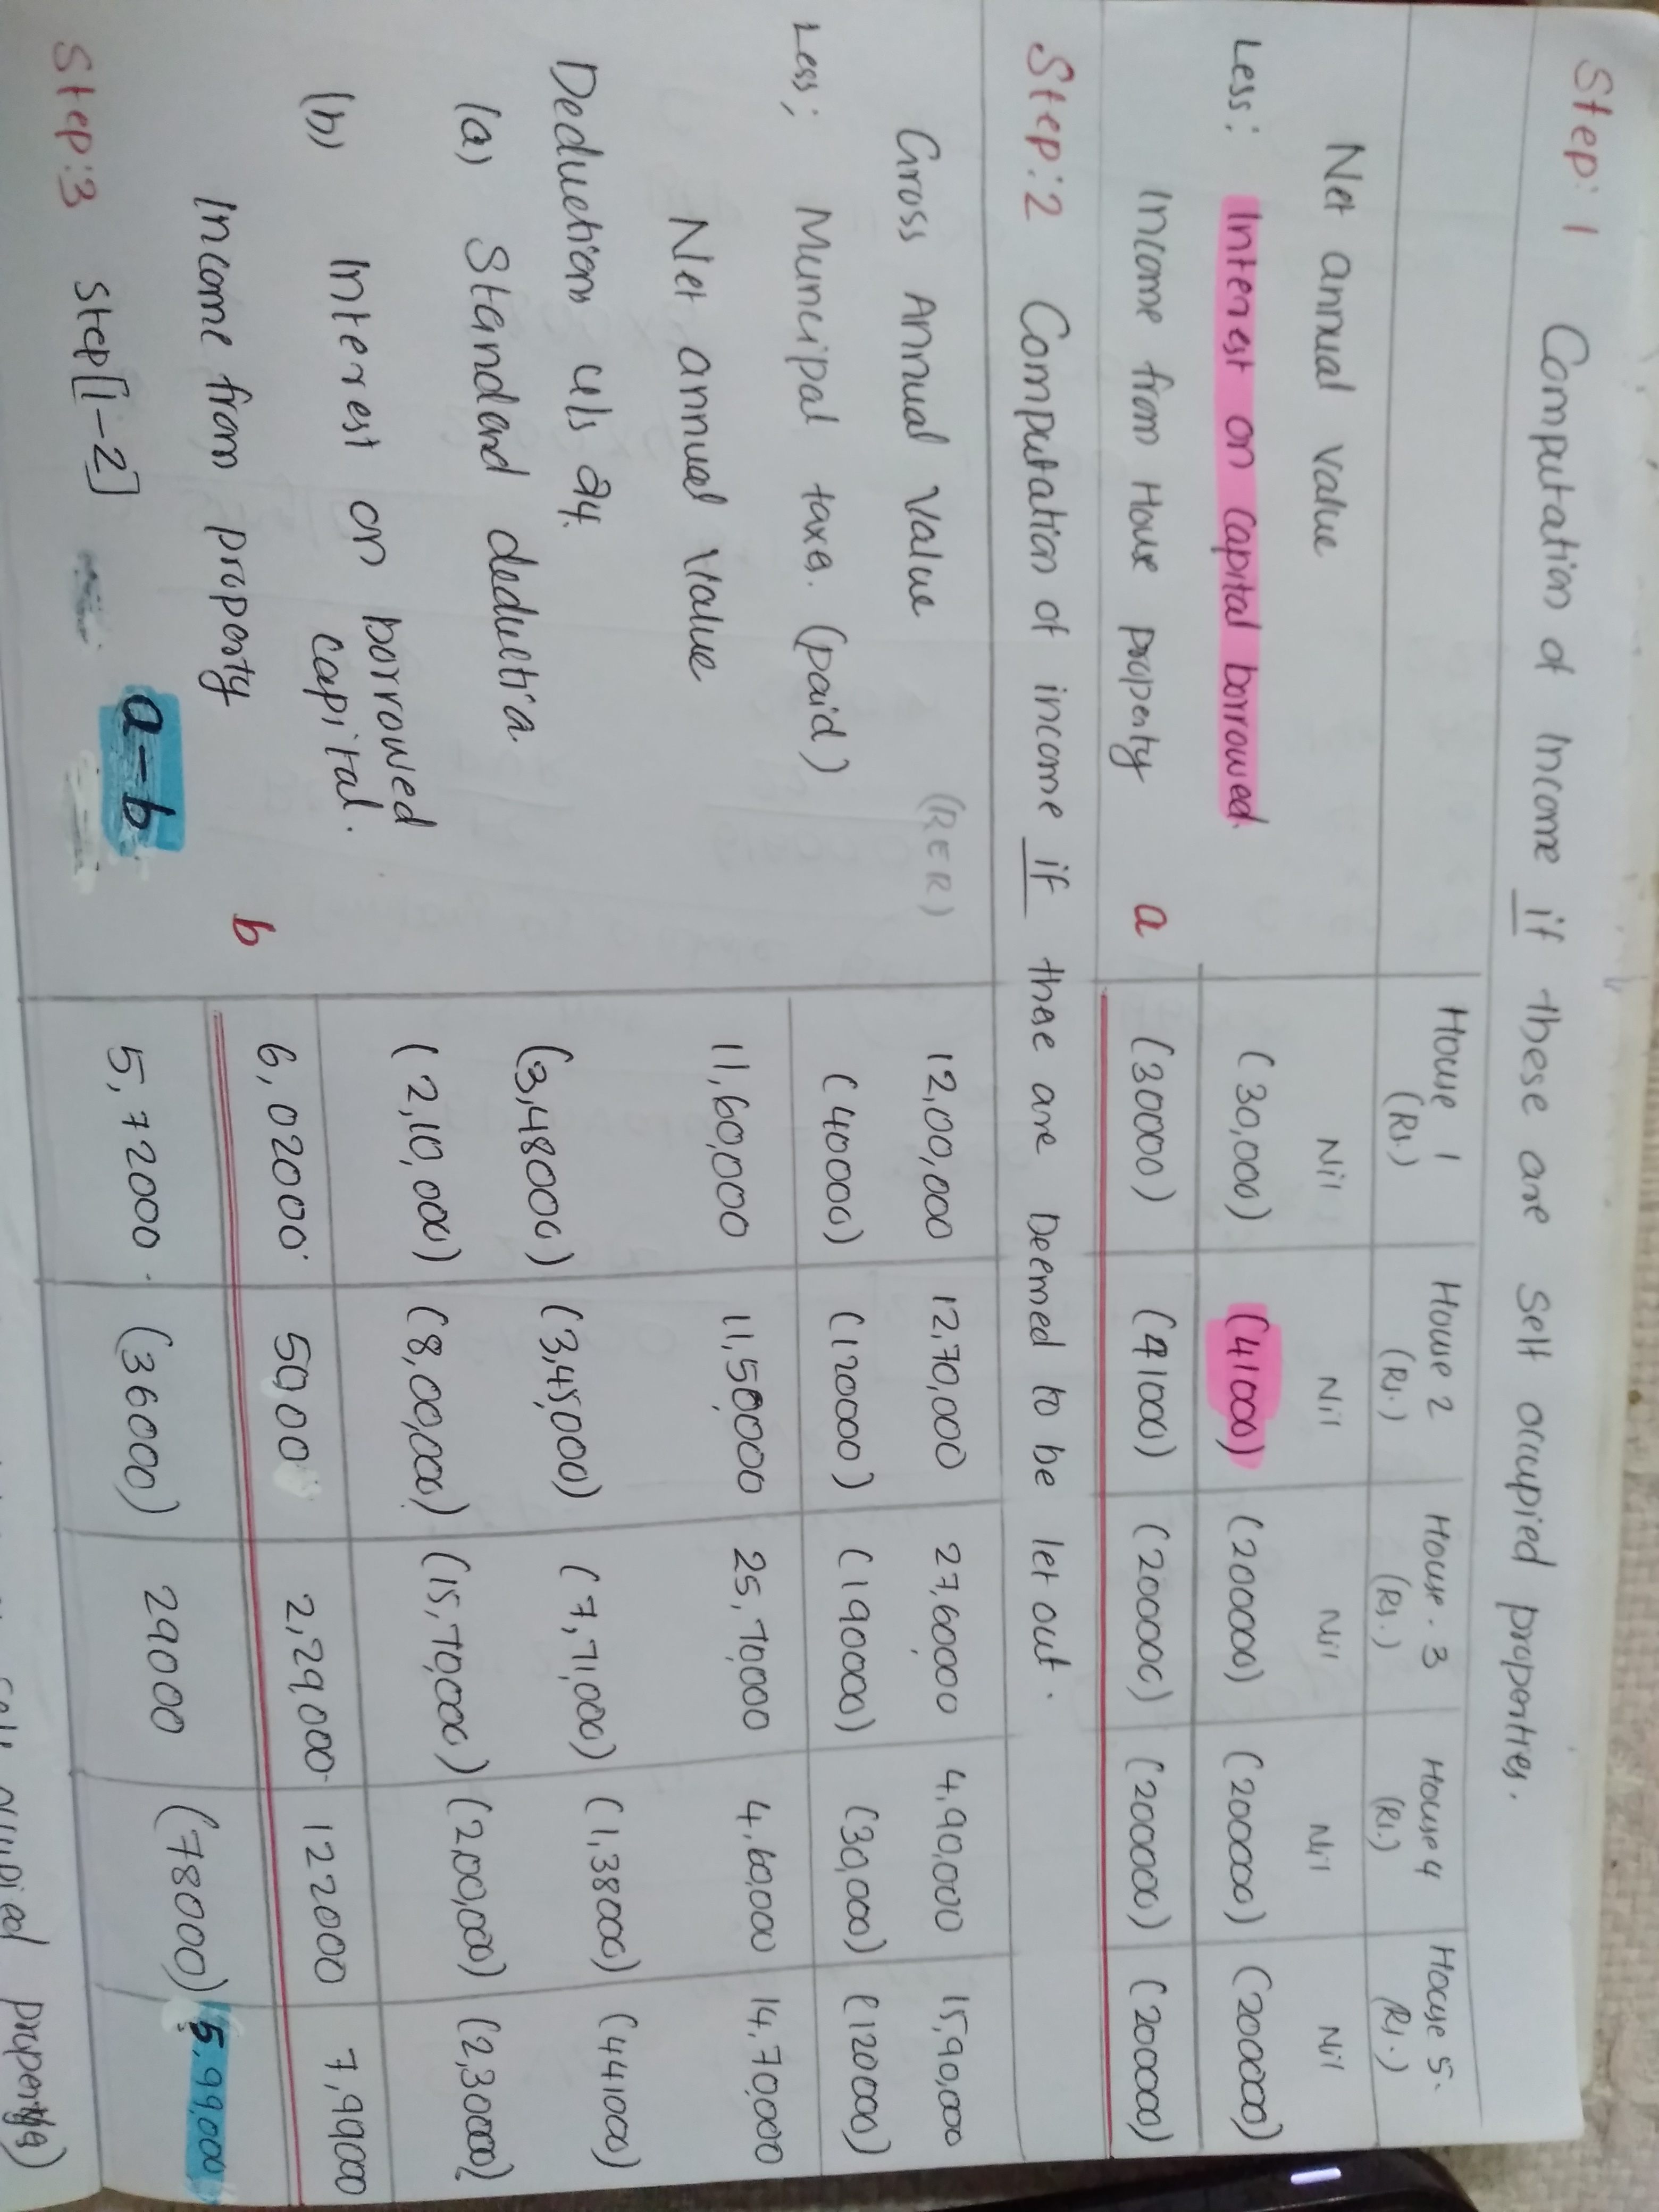 Step: 1 Computation of Income if these are Self occupied properties.
House 1 (Rs.) House 2 (Rs.) House. 3 (Rs.) House 4 (Rs.) House 5. (Rs.)
Net annual value Nil Nil Nil Nil Nil
Less: Interest on capital borrowed. (30,000) (41000) (200000) (200000) (200000)
Income from House property a (30000) (41000) (200000) (200000) (200000)
Step:2 Computation of income if these are Deemed to be let out.
Gross Annual Value (RER) 12,00,000 12,70,000 27,60,000 4,90,000 15,90,000
Less; Muncipal taxes. (paid) (40000) (120000) (190000) (30,000) (120000)
Net annual value 11,60,000 11,50,000 25,70,000 4,60,000 14,70,000
Deductions u/s 24.
(a) Standard deduction (3,48000) (3,45,000) (7,71,000) (1,38000) (441000)
(b) Interest on borrowed capital. (2,10,000) (8,00,000) (15,70,000) (2,00,000) (2,30000)
Income from property b 6,02000 50,00 2,29,000 122000 7,99000
Step:3 Step[1-2] a-b 5,72000 (36000) 29000 (78000) 5,99,000